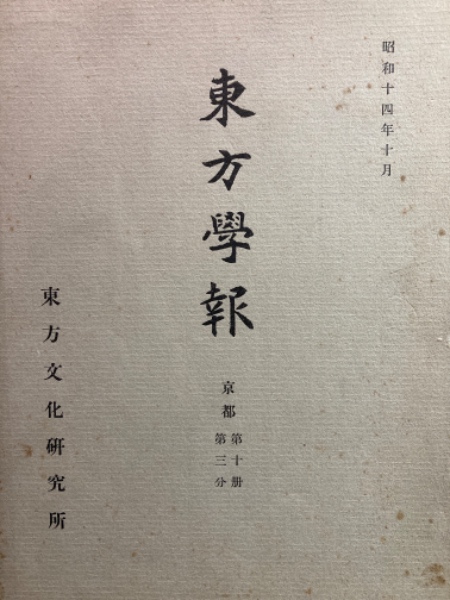 昭和十四年十月
東方學報
京都
第十册
第三分
東方文化研究所